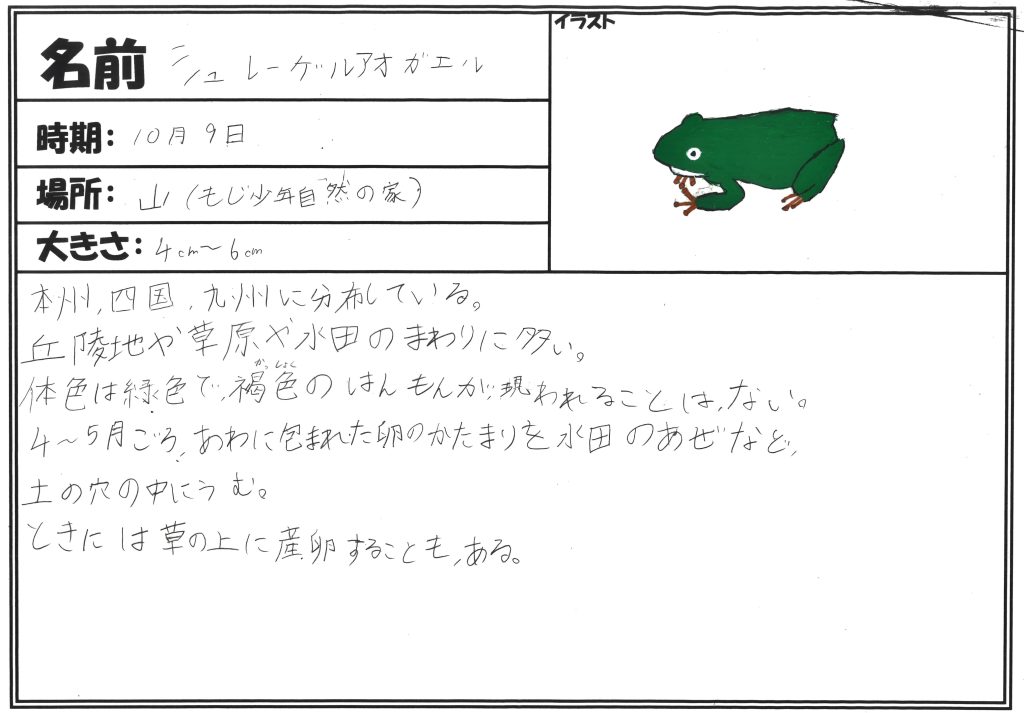 名前 シュレーゲルアオガエル
イラスト
時期: 10月9日
場所: 山(もじ少年自然の家)
大きさ: 4cm〜6cm
本州、四国、九州に分布している。
丘陵地や草原や水田のまわりに多い。
体色は緑色で、褐色のはんもんが現われることは、ない。
かっしょく
4〜5月ごろ、あわに包まれた卵のかたまりを水田のあぜなど、
土の穴の中にうむ。
ときには草の上に産卵することも、ある。